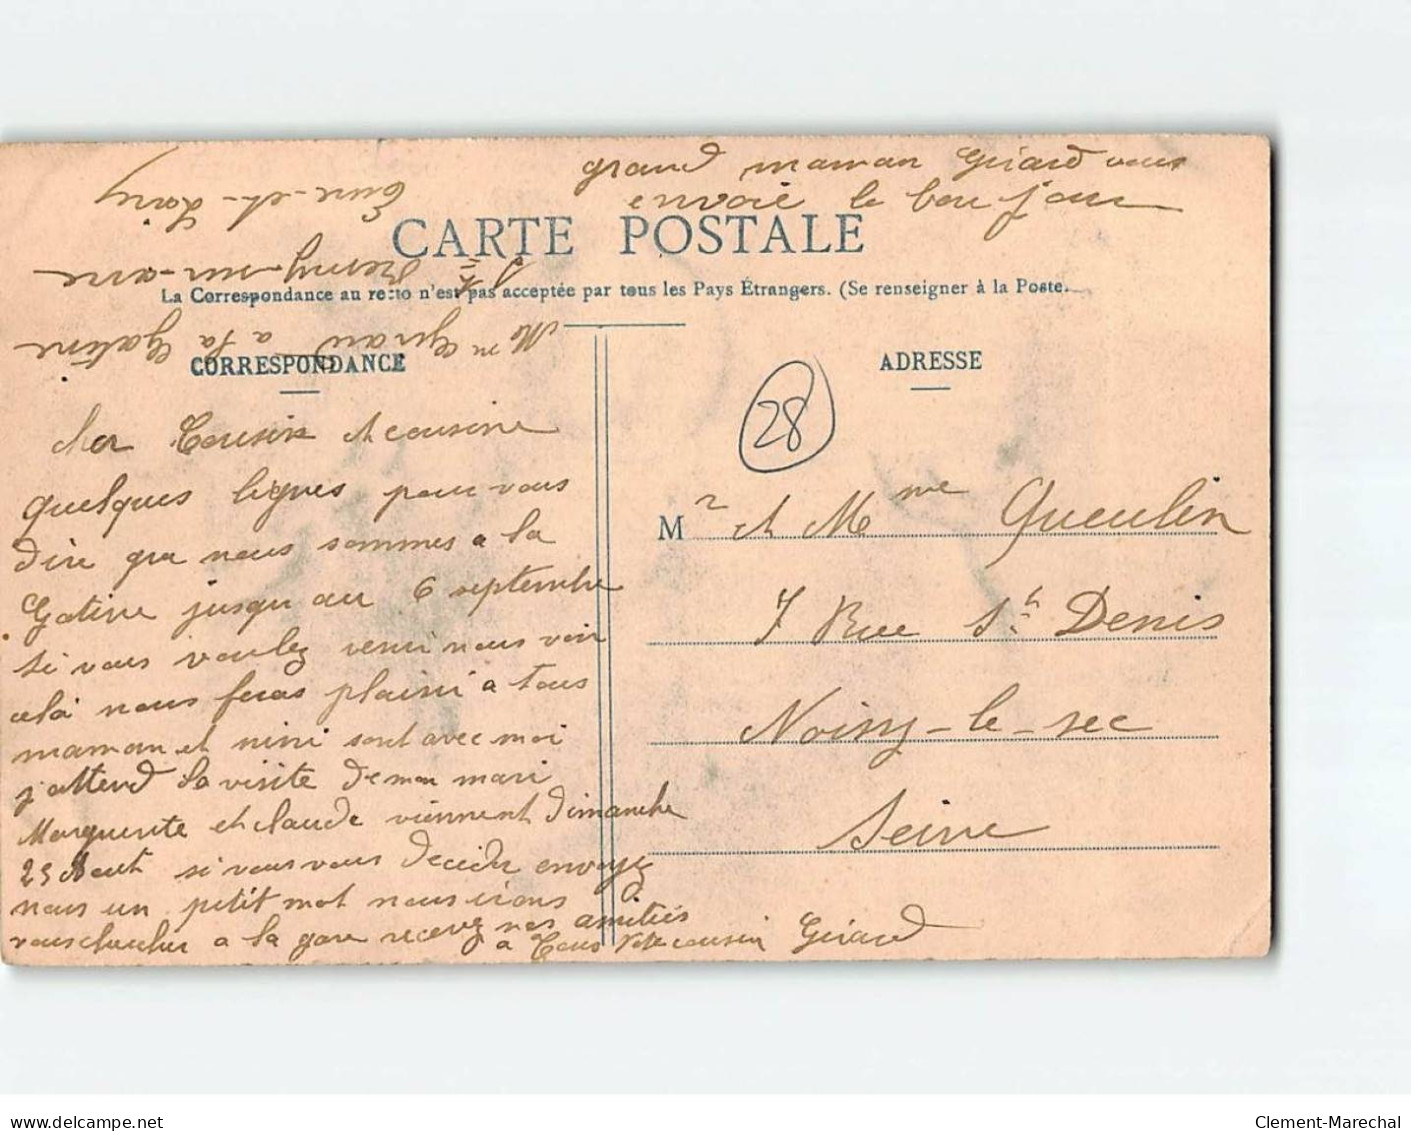 grand maman Girard vous
envoie le bon jour
Mme Girard a la Gatine
St Remy-sur-avre
Eure-et-Loir
CARTE POSTALE
La Correspondance au recto n'est pas acceptée par tous les Pays Étrangers. (Se renseigner à la Poste.
CORRESPONDANCE
ADRESSE
28
cher Cousin et cousine
quelques lignes pour vous
dire que nous sommes a la
Gatine jusqu au 6 septembre
si vous voulez venir nous voir
cela nous feras plaisir a tous
maman et nini sont avec moi
j'attend la visite de mon mari
Marguerite et claude viennent dimanche
25 Aout si vous vous decider envoyez
nous un petit mot nous irons
vous chercher a la gare recevez nos amitiés
a tous Votre cousin Girard
Mr et Mme Gueulin
7 Rue St Denis
Noisy-le-sec
Seine
delcampe.net
Clement-Marechal